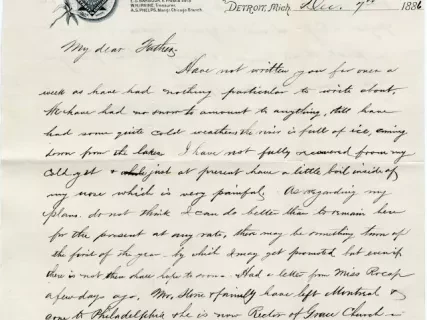 W.H. PRINE, Treasurer.
A.S. PHELPS, Man'g'r Chicago Branch.
DETROIT, Mich. Dec. 7th 1886
My dear Father,
Have not written you for over a
week as have had nothing particular to write about.
We have had no snow to amount to anything, still have
had some quite cold weather the river is full of ice, coming
down from the lakes I have not fully recovered from my
cold yet & just at present have a little boil inside of
my nose which is very painful. As regarding my
plans. do not think I can do better than to remain here
for the present at any rate, there may be something turn up
the first of the year by which I may get promoted but even if
there is not then shall hope to soon. Had a letter from Miss Rocap
a few days ago. Mr. & family have left Montreal &
gone to Philadelphia he is now Rector of Grace Church